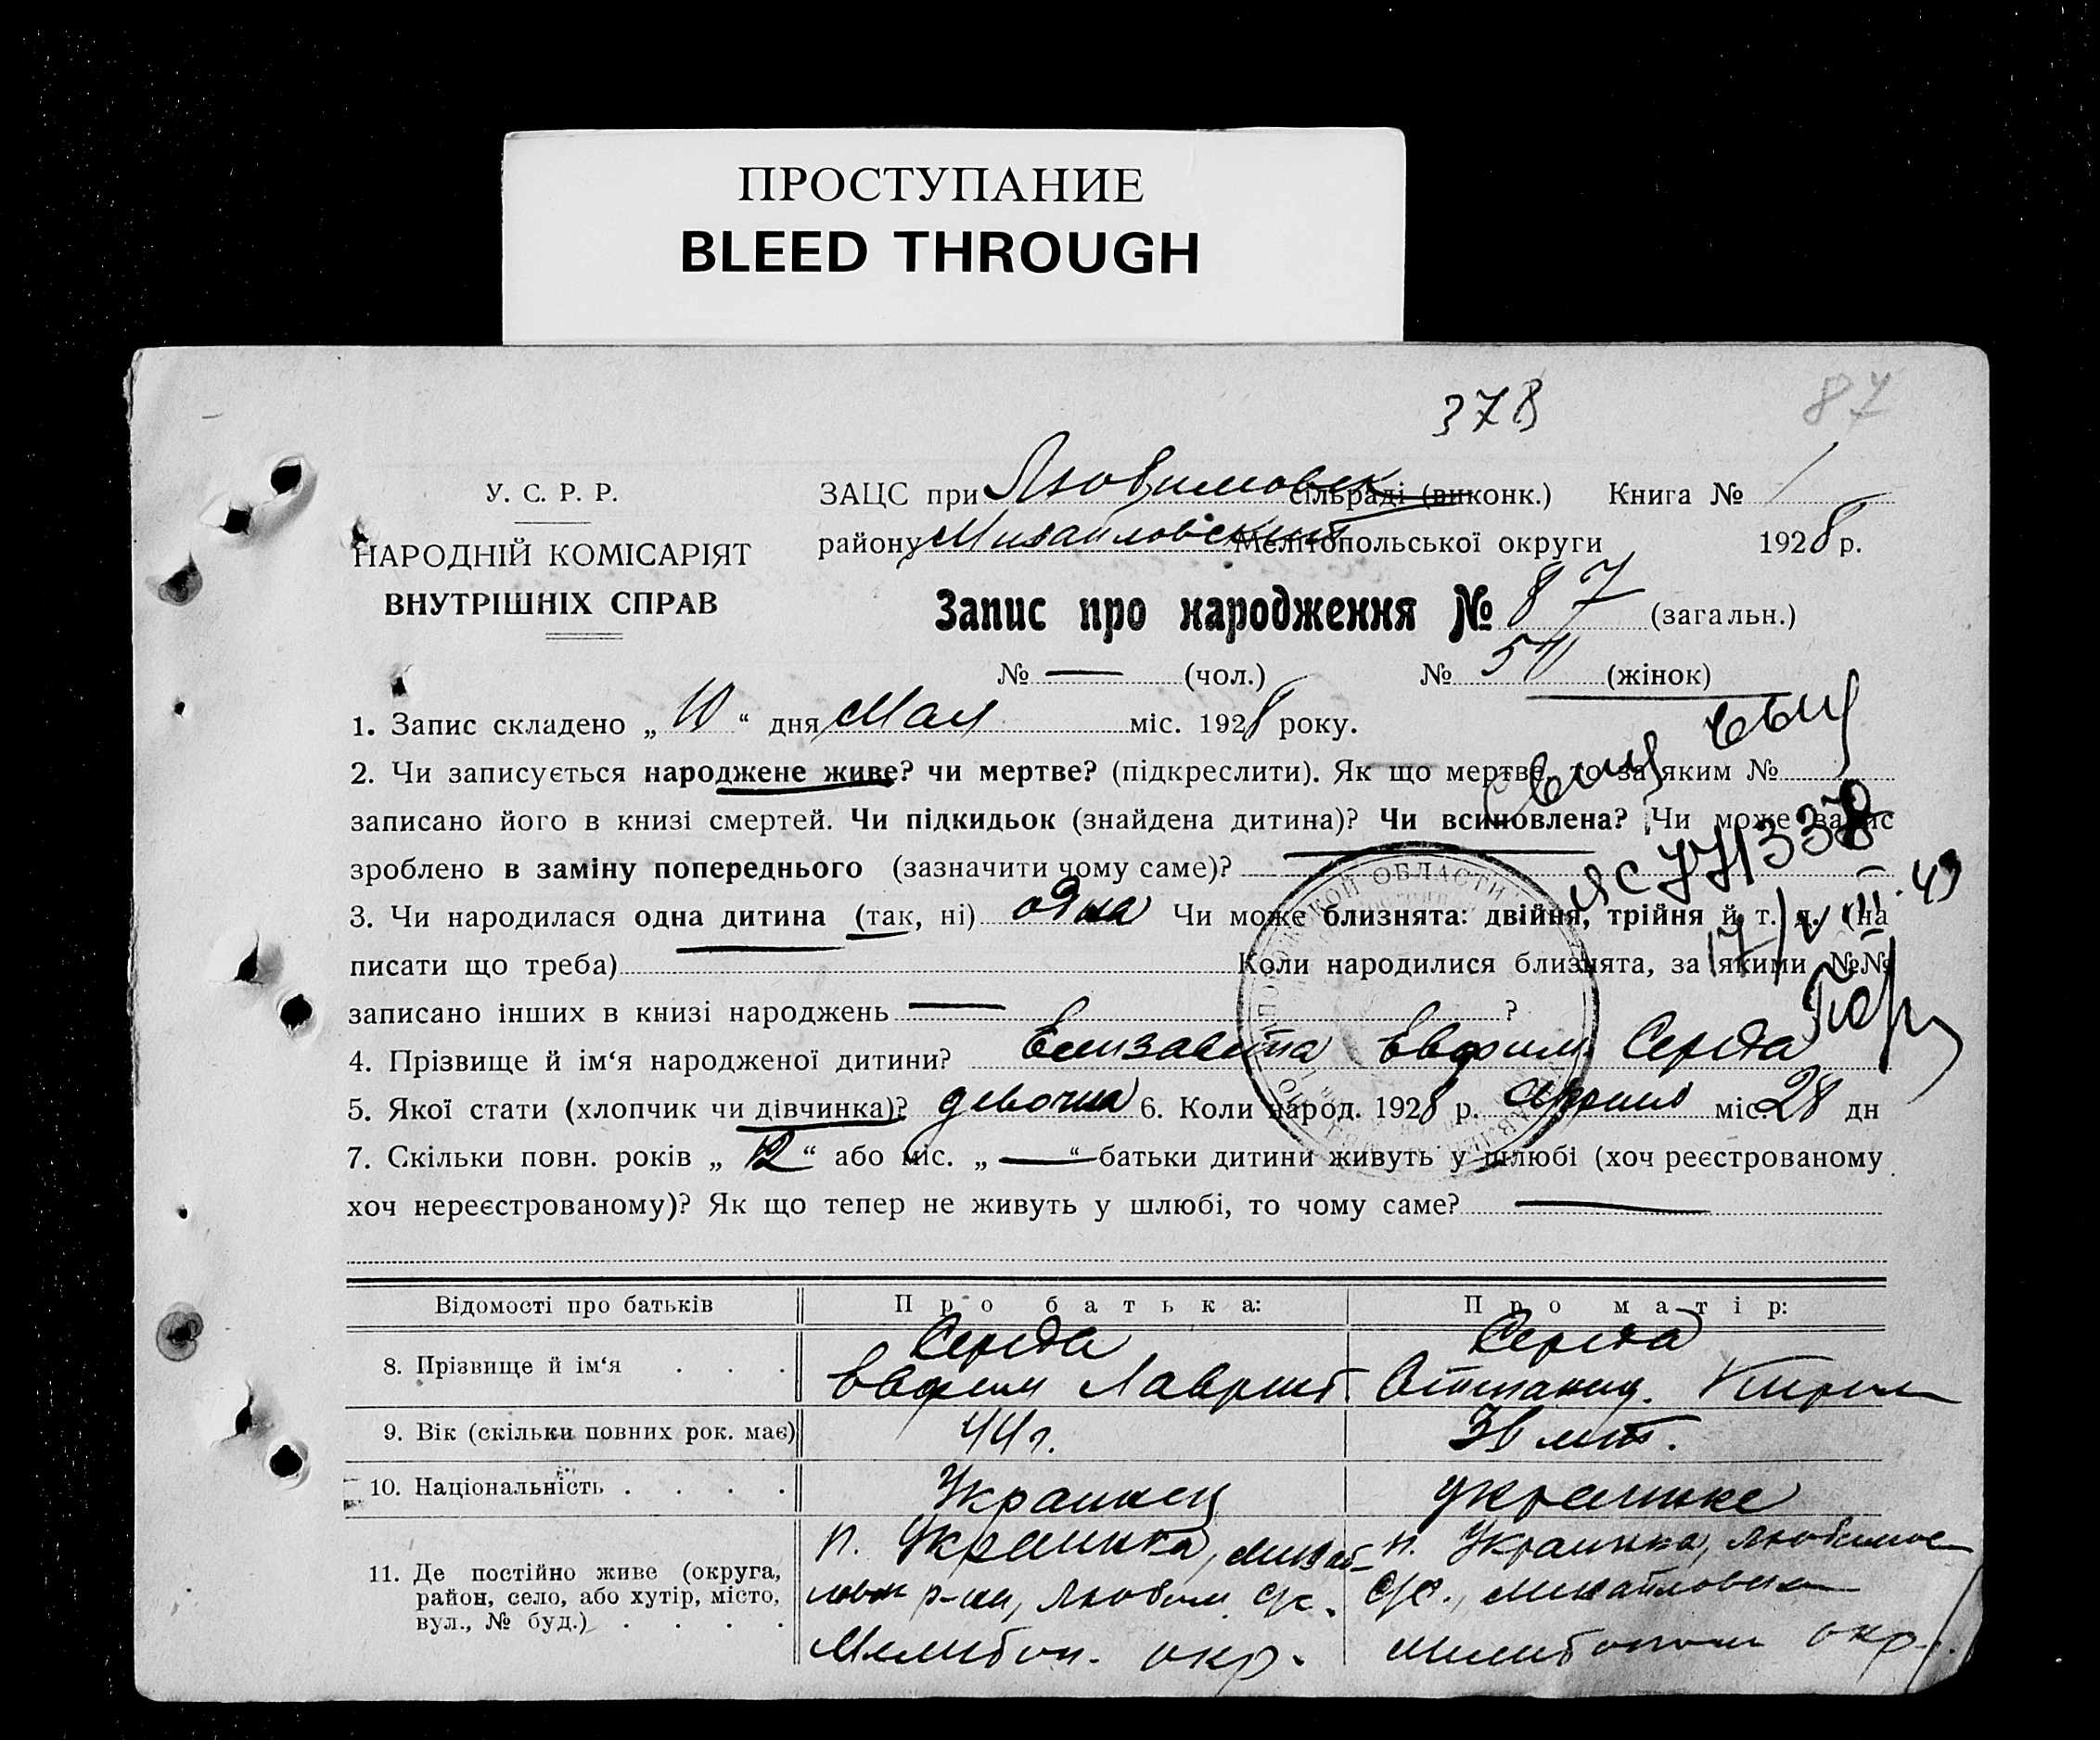 ПРОСТУПАНИЕ
BLEED THROUGH
378
87
У. С. Р. Р.
НАРОДНІЙ КОМІСАРІЯТ
ВНУТРІШНІХ СПРАВ
ЗАЦС при Любимовск сільраді (виконк.) Книга № 1
району Михайловский Мелітопольської округи 1928 р.
Запис про народження № 87 (загальн.)
№ — (чол.) № 50 (жінок)
1. Запис складено „ 10 “ дня Мая міс. 1928 року.
2. Чи записується народжене живе? чи мертве? (підкреслити). Як що мертве, то за яким №
записано його в книзі смертей. Чи підкидьок (знайдена дитина)? Чи всиновлена? Чи може запис
зроблено в заміну попереднього (зазначити чому саме)?
3. Чи народилася одна дитина (так, ні) одна Чи може близнята: двійня, трійня й т. д. (на
писати що треба) Коли народилися близнята, за якими №№
записано інших в книзі народжень — ?
4. Прізвище й ім‘я народженої дитини? Елизавета Евфим. Середа
5. Якої стати (хлопчик чи дівчинка)? девочка 6. Коли народ. 1928 р. апреля міс. 28 дн
7. Скільки повн. років „ 12 “ або міс. „ — “ батьки дитини живуть у шлюбі (хоч реєстрованому
хоч нереєстрованому)? Як що тепер не живуть у шлюбі, то чому саме? —
Відомості про батьків Про батька: Про матір:
8. Прізвище й ім‘я . . . Середа Евфим Лаврент. Середа Степанид. Кирил
9. Вік (скільки повних рок. має) 44 г. лет.
10. Національність . . . . Украинец украинке
11. Де постійно живе (округа,
район, село, або хутір, місто,
вул., № буд.) . . . .
п. Украинка, Михай-
ловск р-на, Любим. с/с.
Мелитоп. окр.
п. Украинка, Любимов
с/с., Михайловск
Мелитопол окр.